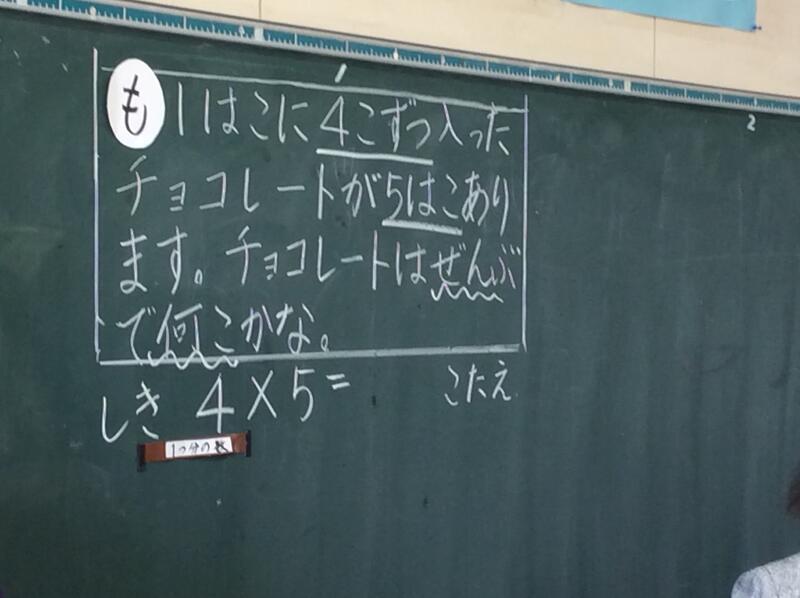 も
1はこに4こずつ入った
チョコレートが5はこあり
ます。チョコレートはぜんぶ
で何こかな。
しき 4×5= こたえ
1つ分の数
2